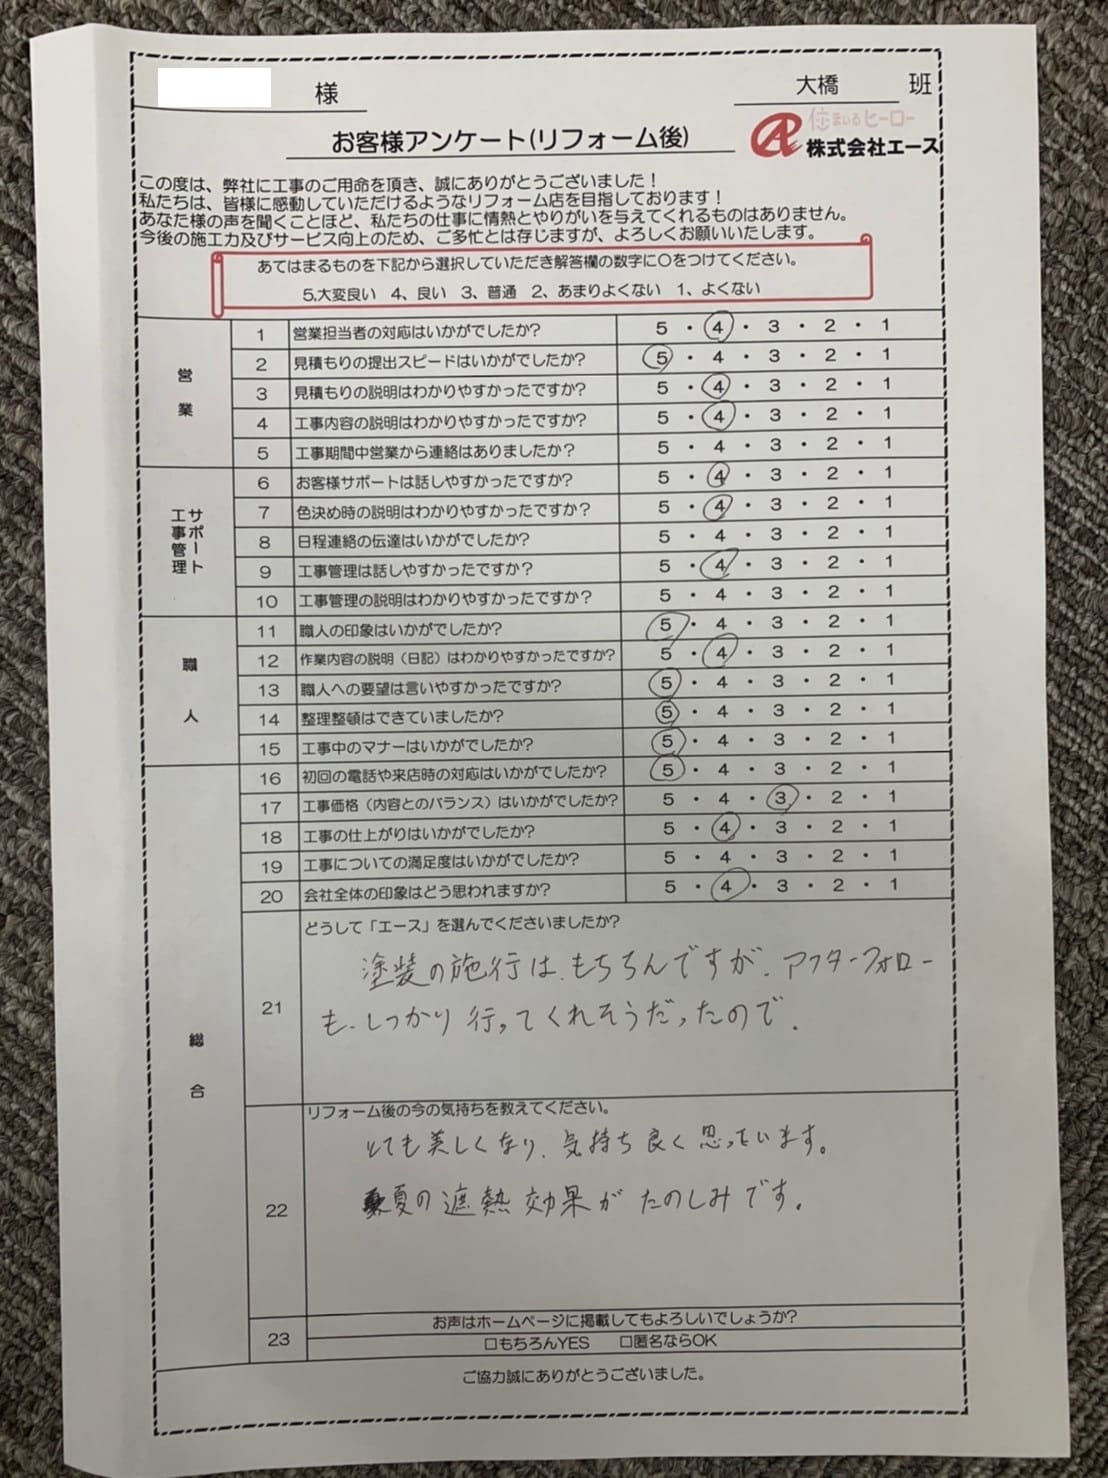 様
大橋 班
お客様アンケート(リフォーム後)
住まいるヒーロー
株式会社エース
この度は、弊社に工事のご用命を頂き、誠にありがとうございました！
私たちは、皆様に感動していただけるようなリフォーム店を目指しております！
あなた様の声を聞くことほど、私たちの仕事に情熱とやりがいを与えてくれるものはありません。
今後の施工力及びサービス向上のため、ご多忙とは存じますが、よろしくお願いいたします。
あてはまるものを下記から選択していただき解答欄の数字に〇をつけてください。
5,大変良い 4、良い 3、普通 2、あまりよくない 1、よくない
営業
1 営業担当者の対応はいかがでしたか? 5・4・3・2・1
2 見積もりの提出スピードはいかがでしたか? 5・4・3・2・1
3 見積もりの説明はわかりやすかったですか? 5・4・3・2・1
4 工事内容の説明はわかりやすかったですか? 5・4・3・2・1
5 工事期間中営業から連絡はありましたか? 5・4・3・2・1
サポート
工事管理
6 お客様サポートは話しやすかったですか? 5・4・3・2・1
7 色決め時の説明はわかりやすかったですか? 5・4・3・2・1
8 日程連絡の伝達はいかがでしたか? 5・4・3・2・1
9 工事管理は話しやすかったですか? 5・4・3・2・1
10 工事管理の説明はわかりやすかったですか? 5・4・3・2・1
職人
11 職人の印象はいかがでしたか? 5・4・3・2・1
12 作業内容の説明（日記）はわかりやすかったですか? 5・4・3・2・1
13 職人への要望は言いやすかったですか? 5・4・3・2・1
14 整理整頓はできていましたか? 5・4・3・2・1
15 工事中のマナーはいかがでしたか? 5・4・3・2・1
総合
16 初回の電話や来店時の対応はいかがでしたか? 5・4・3・2・1
17 工事価格（内容とのバランス）はいかがでしたか? 5・4・3・2・1
18 工事の仕上がりはいかがでしたか? 5・4・3・2・1
19 工事についての満足度はいかがでしたか? 5・4・3・2・1
20 会社全体の印象はどう思われますか? 5・4・3・2・1
21 どうして「エース」を選んでくださいましたか?
塗装の施行は、もちろんですが、アフターフォロー
も、しっかり行ってくれそうだったので、
22 リフォーム後の今の気持ちを教えてください。
とても美しくなり、気持ち良く思っています。
夏の遮熱効果がたのしみです。
23 お声はホームページに掲載してもよろしいでしょうか?
□もちろんYES □匿名ならOK
ご協力誠にありがとうございました。